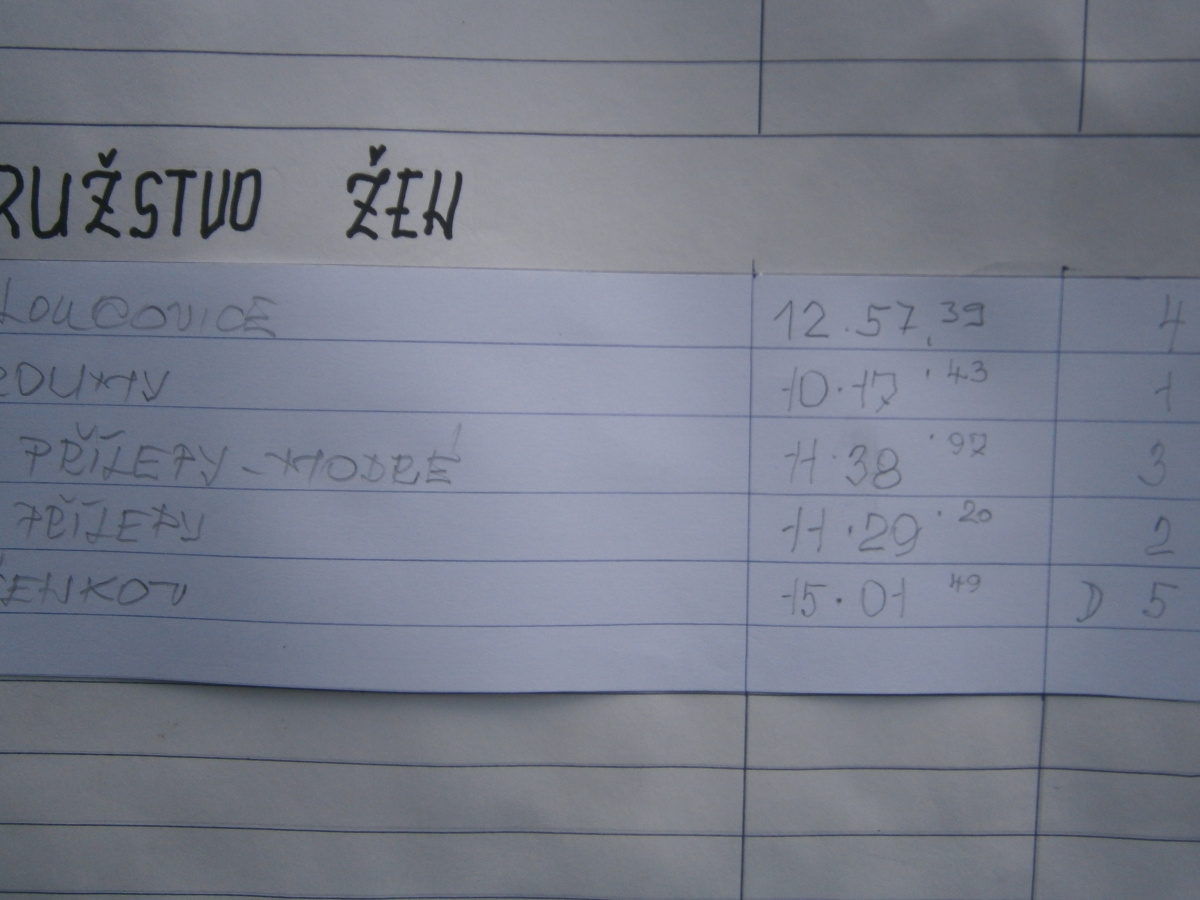 RUŽSTVO ŽEN
LOUCOVICE 12.57,39 4
ROUMY 10.17.43 1
PŘÍLEPY-MODRÉ 11.38.97 3
PŘÍLEPY 11.29.20 2
ČENKOV 15.01 49 D 5